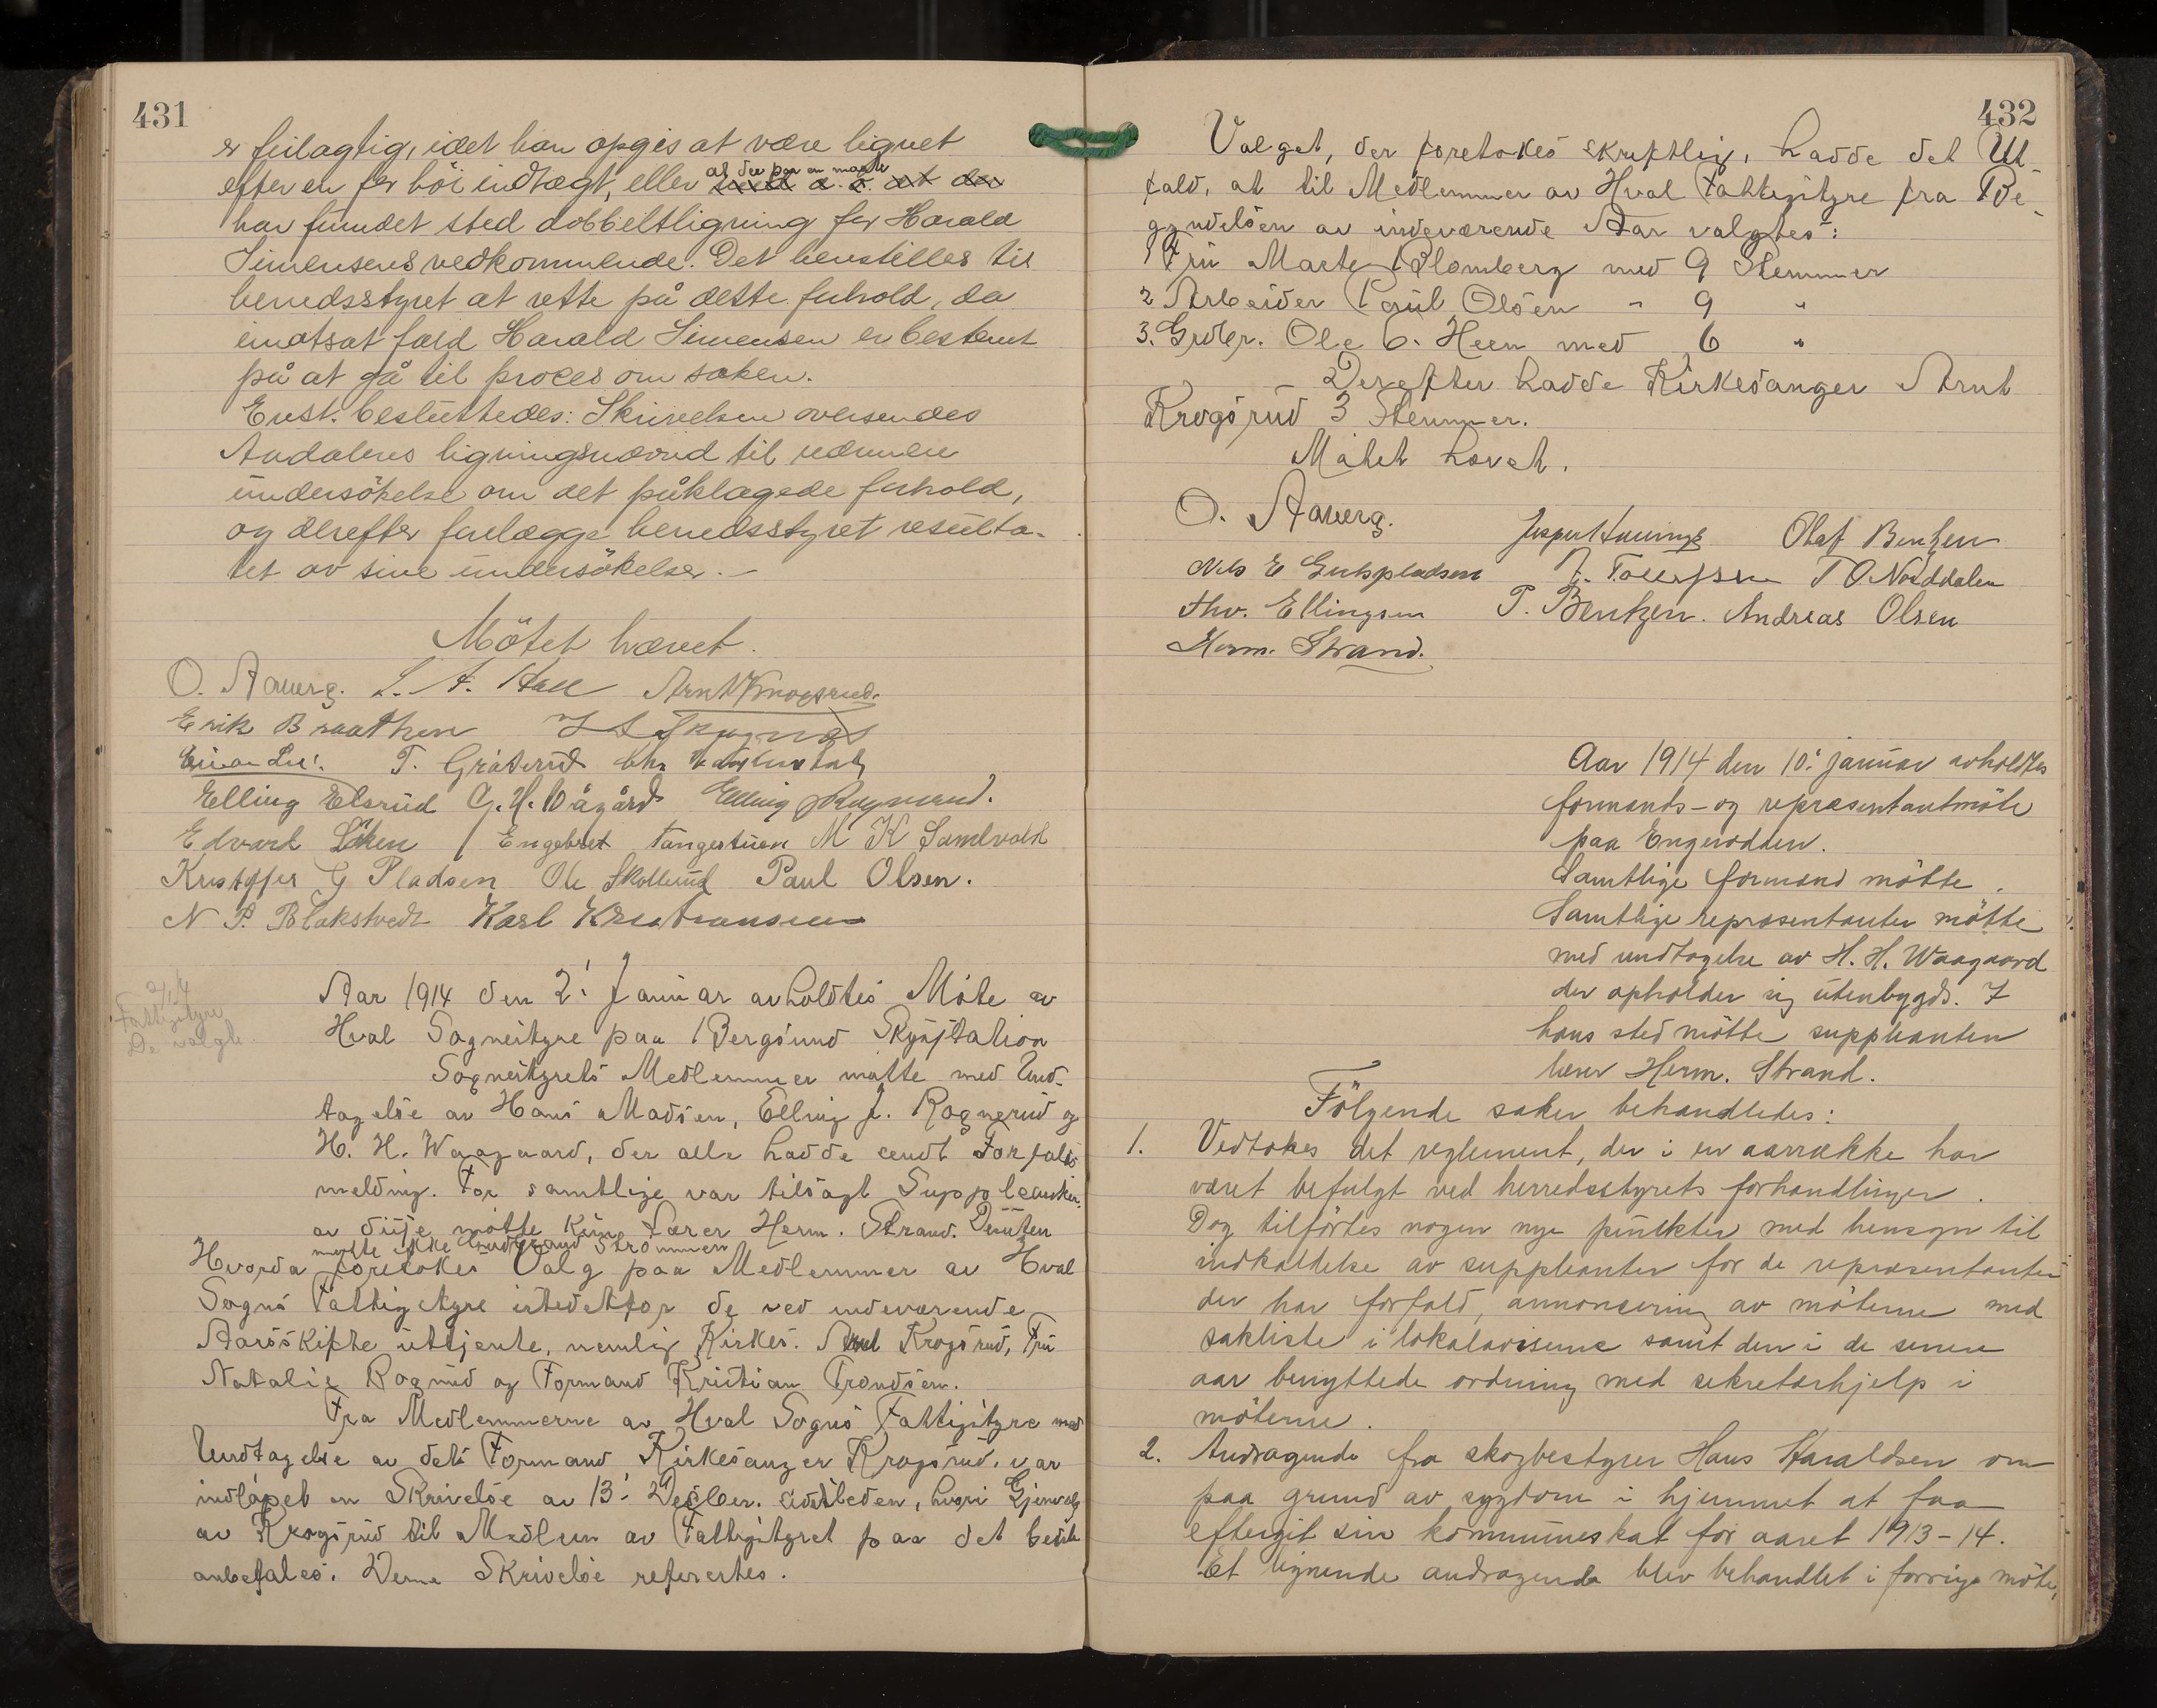 431
er feilagtig, idet han opgis at være lignet
efter en for höi indtægt, eller at der paa en maate
har fundet sted dobbeltligning for Harald
Simensens vedkommende. Det henstilles til
herredsstyret at rette på dette forhold, da
imotsat fald Harald Simensen er bestemt
på at gå til proces om saken.
Enst. besluttedes: Skrivelsen oversendes
Aadalens ligningsnævnd til nærmere
undersökelse om det påklagede forhold,
og derefter forelægge herredsstyret resulta-
tet av sine undersökelser.-
Mötet hævet.
O. Aaverg. L. A. Hall Arnt Krogsrud.
Erik Braathen
Einar Lie. T. Gråterud Chr.
Elling Elsrud G. H. Vågård Elling Rognerud.
Edvard Löken Engebret Tangestuen M K Sandvold
Kristoffer G Pladsen Ole Skollerud Paul Olsen.
N. P. Blakstvedt Karl Kristiansen
2/1 14
Fattigstyre
De valgte
Aar 1914 den 2! Januar avholdtes Møte av
Hval Sognestyre paa Bergsund Skysstation
Sognestyrets Medlemmer møtte med Und-
tagelse av Hans Madsen, Elling J. Rognerud og
H. H. Waagaard, der alle hadde sendt Forfalds
melding. For samtlige var tilsagt Suppleanter,
av disse møtte kun Lærer Herm. Strand. Desuten
møtte ikke Gudbrand Strømmen
Hvorda foretokes Valg paa Medlemmer av Hval
Sogns Fattigstyre istedetfor de ved indeværende
Aarsskifte uttjente, nemlig Kirkes. Arnt Krogsrud, Fru
Natalie Rognrud og Formand Kristian Trondsen.
Fra Medlemmerne av Hval Sogns Fattigstyre med
Undtagelse av dets Formand Kirkesanger Krogsrud, var
indløpet en Skrivelse av 13! Decber. sidstleden, hvori Gjenvalg
av Krogsrud til Medlem av Fattigstyret paa det bedste
anbefales. Denne Skrivelse refertes.
432
Valget, der foretokes skriftlig, hadde det Ut-
fald, at til Medlemmer av Hval Fattigstyre fra Be-
gyndelsen av indeværende Aar valgtes:
1 Fru Marte Blomberg med 9 Stemmer
2 Arbeider Paul Olsen - 9 "
3. Grdbr. Ole O. Heen med 6 "
Derefter hadde Kirkesanger Arnt
Krogsrud 3 Stemmer.
Møtet hævet.
O. Aaverg. Olaf Bentzen
Nils E Gulspladsen A. Tollefsen T O Norddalen
Thv. Ellingsen P. Bentzen. Andreas Olsen
Herm. Strand.
Aar 1914 den 10. januar avholdtes
formands- og repræsentantmöte
paa Engerodden.
Samtlige formænd mötte.
Samtlige repræsentanter mötte
med undtagelse av H. H. Waagaard
der opholder sig utenbygds. I
hans sted mötte suppleanten
lærer Herm. Strand.
Fölgende saker behandledes:
1. Vedtokes det reglement, der i en aarrække har
været befulgt ved herredsstyrets forhandlinger.
Dog tilförtes nogen nye punkter med hensyn til
indkaldelse av suppleanter for de repræsentanter
der har forfald, annoncering av möterne med
sakliste i lokalaviserne samt den i de senere
aar benyttede ordning med sekretærhjelp i
möterne.
2. Andragende fra skogbestyrer Hans Haraldsen om
paa grund av sygdom i hjemmet at faa
eftergit sin kommuneskat for aaret 1913-14.
Et lignende andragende blev behandlet i forrige möte,